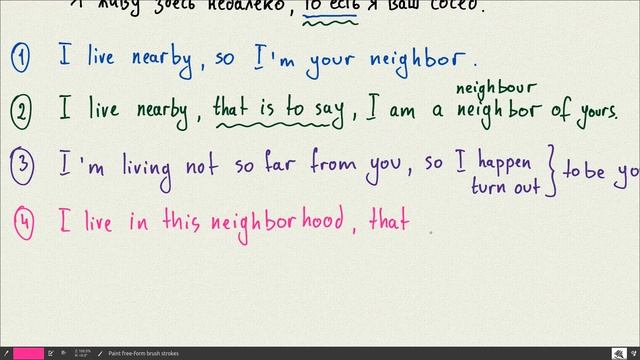 Я живу здесь недалеко, то есть я ваш сосед.
1 I live nearby, so I'm your neighbor.
neighbour
2 I live nearby, that is to say, I am a neighbor of yours.
3 I'm living not so far from you, so I happen } to be yo
turn out
4 I live in this neighborhood, that
Paint free-form brush strokes